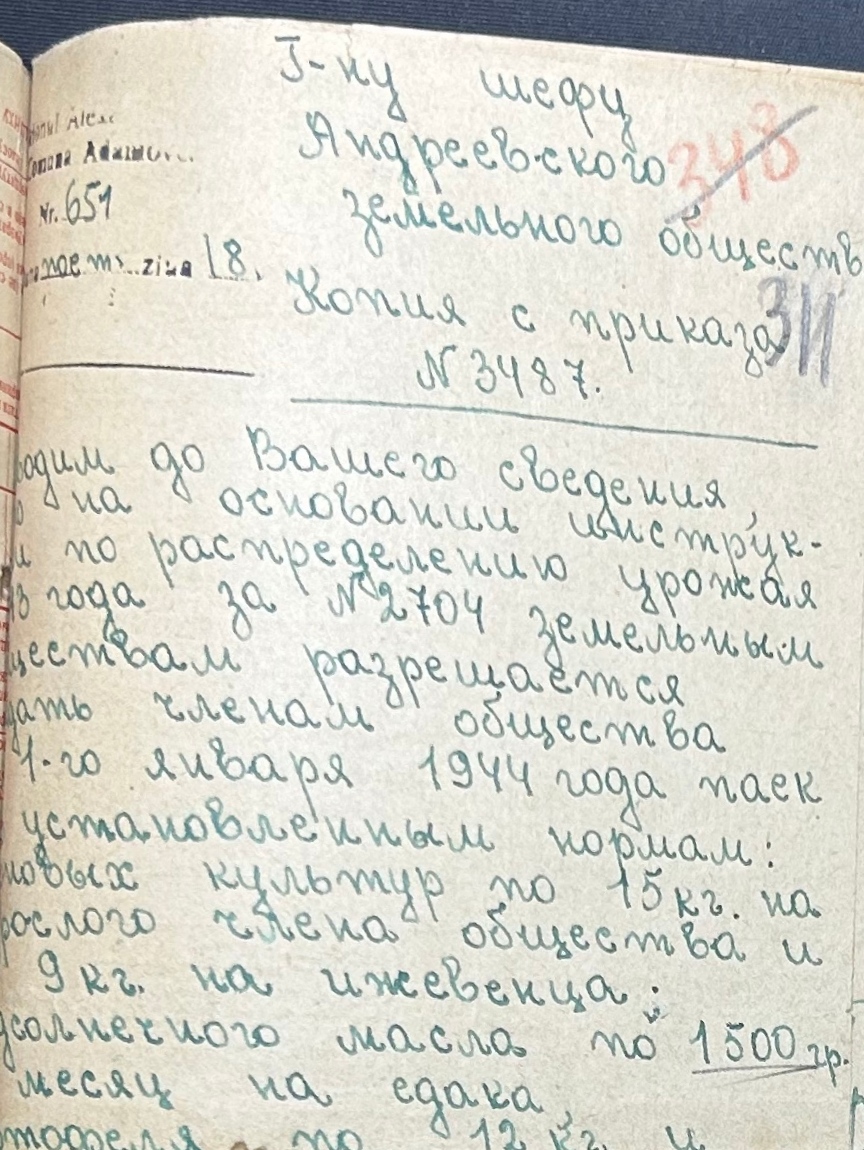 Г-ну шефу
Андреевского
348
земельного обществ
Nr. 651
18.
Копия с приказа
311
N 3487.
водим до Вашего сведения,
на основании инструк-
и по распределению урожая
3 года за №2704 земельным
ществам разрешается
дать членам общества
1-го января 1944 года паек
установленным нормам:
новых культур по 15 кг. на
рослого члена общества и
9 кг. на ижевенца;
дсолнечного масла по 1500 гр.
месяц на едака,
тофеля по 12 кг. и